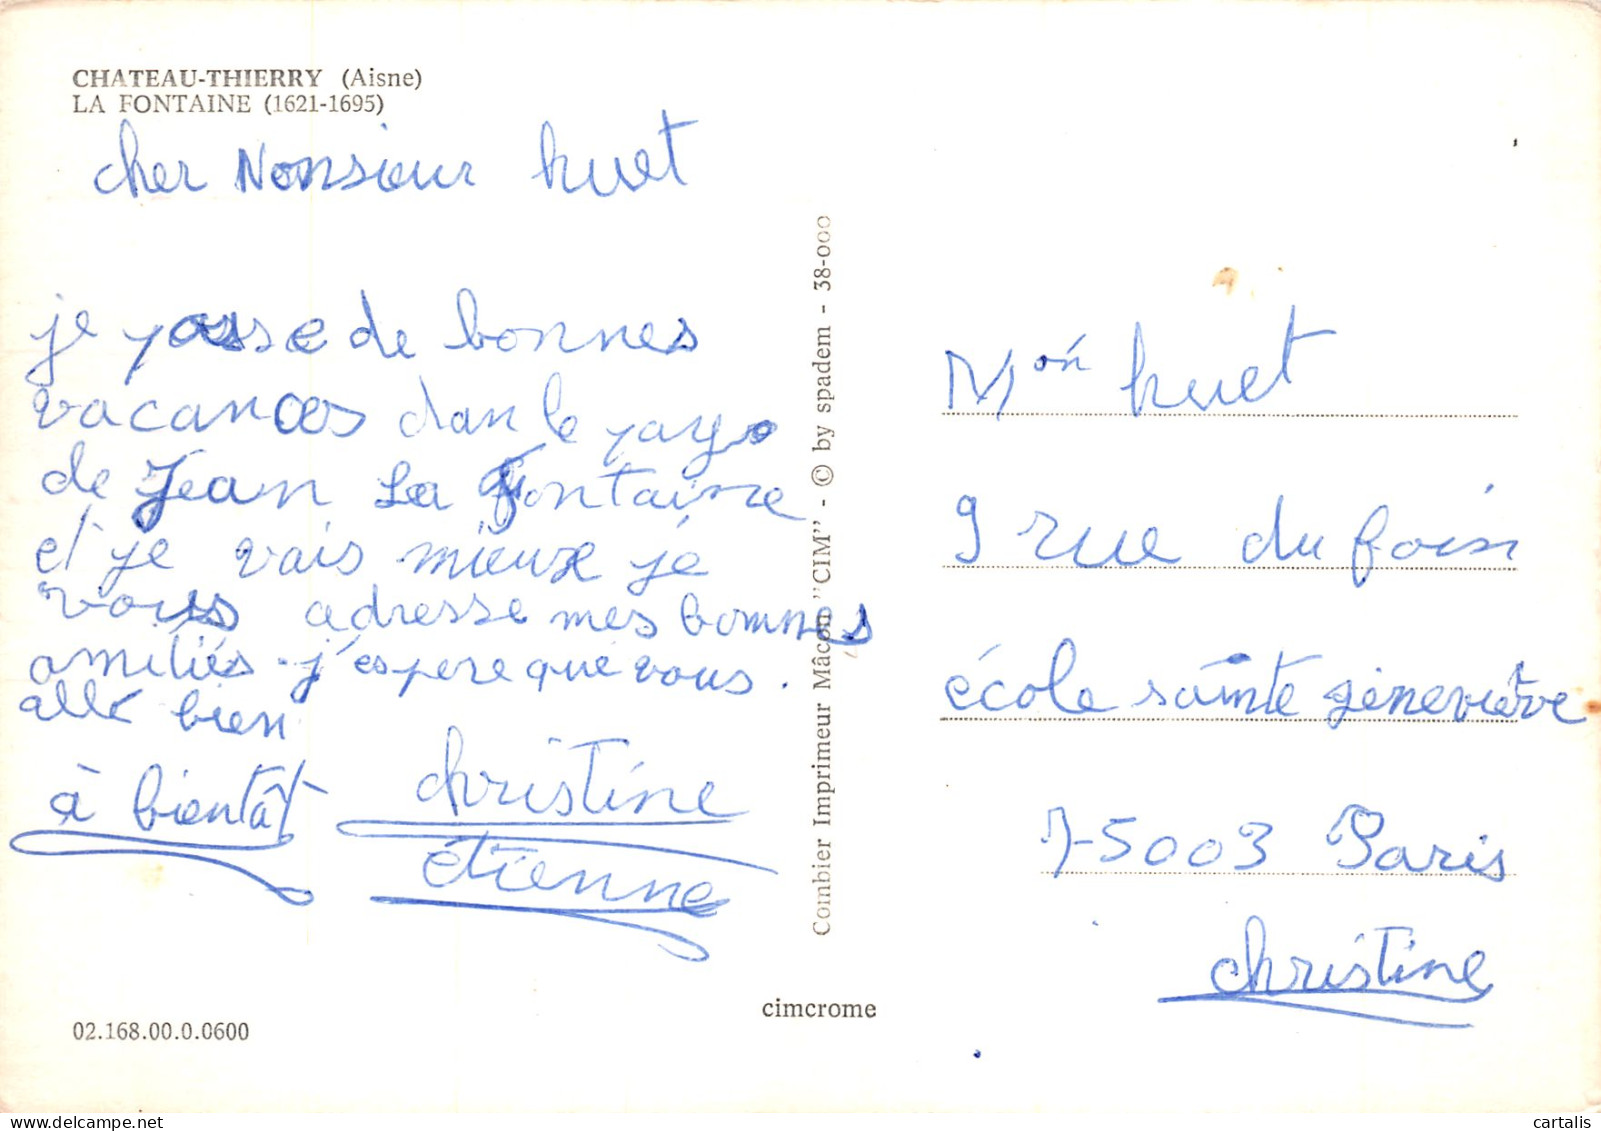 CHATEAU-THIERRY (Aisne)
LA FONTAINE (1621-1695)
cher Monsieur huet
je passe de bonnes
vacances dan le pays
de Jean La Fontaine
et je vais mieux je
vous adresse mes bonnes
amitiés. j'espere que vous.
allé bien
à bientôt
christine
étienne
02.168.00.0.0600
cimcrome
Combier Imprimeur Mâcon "CIM" - © by spadem - 38-000
Mon huet
9 rue du foin
école sainte geneviève
75003 Paris
christine
cartalis